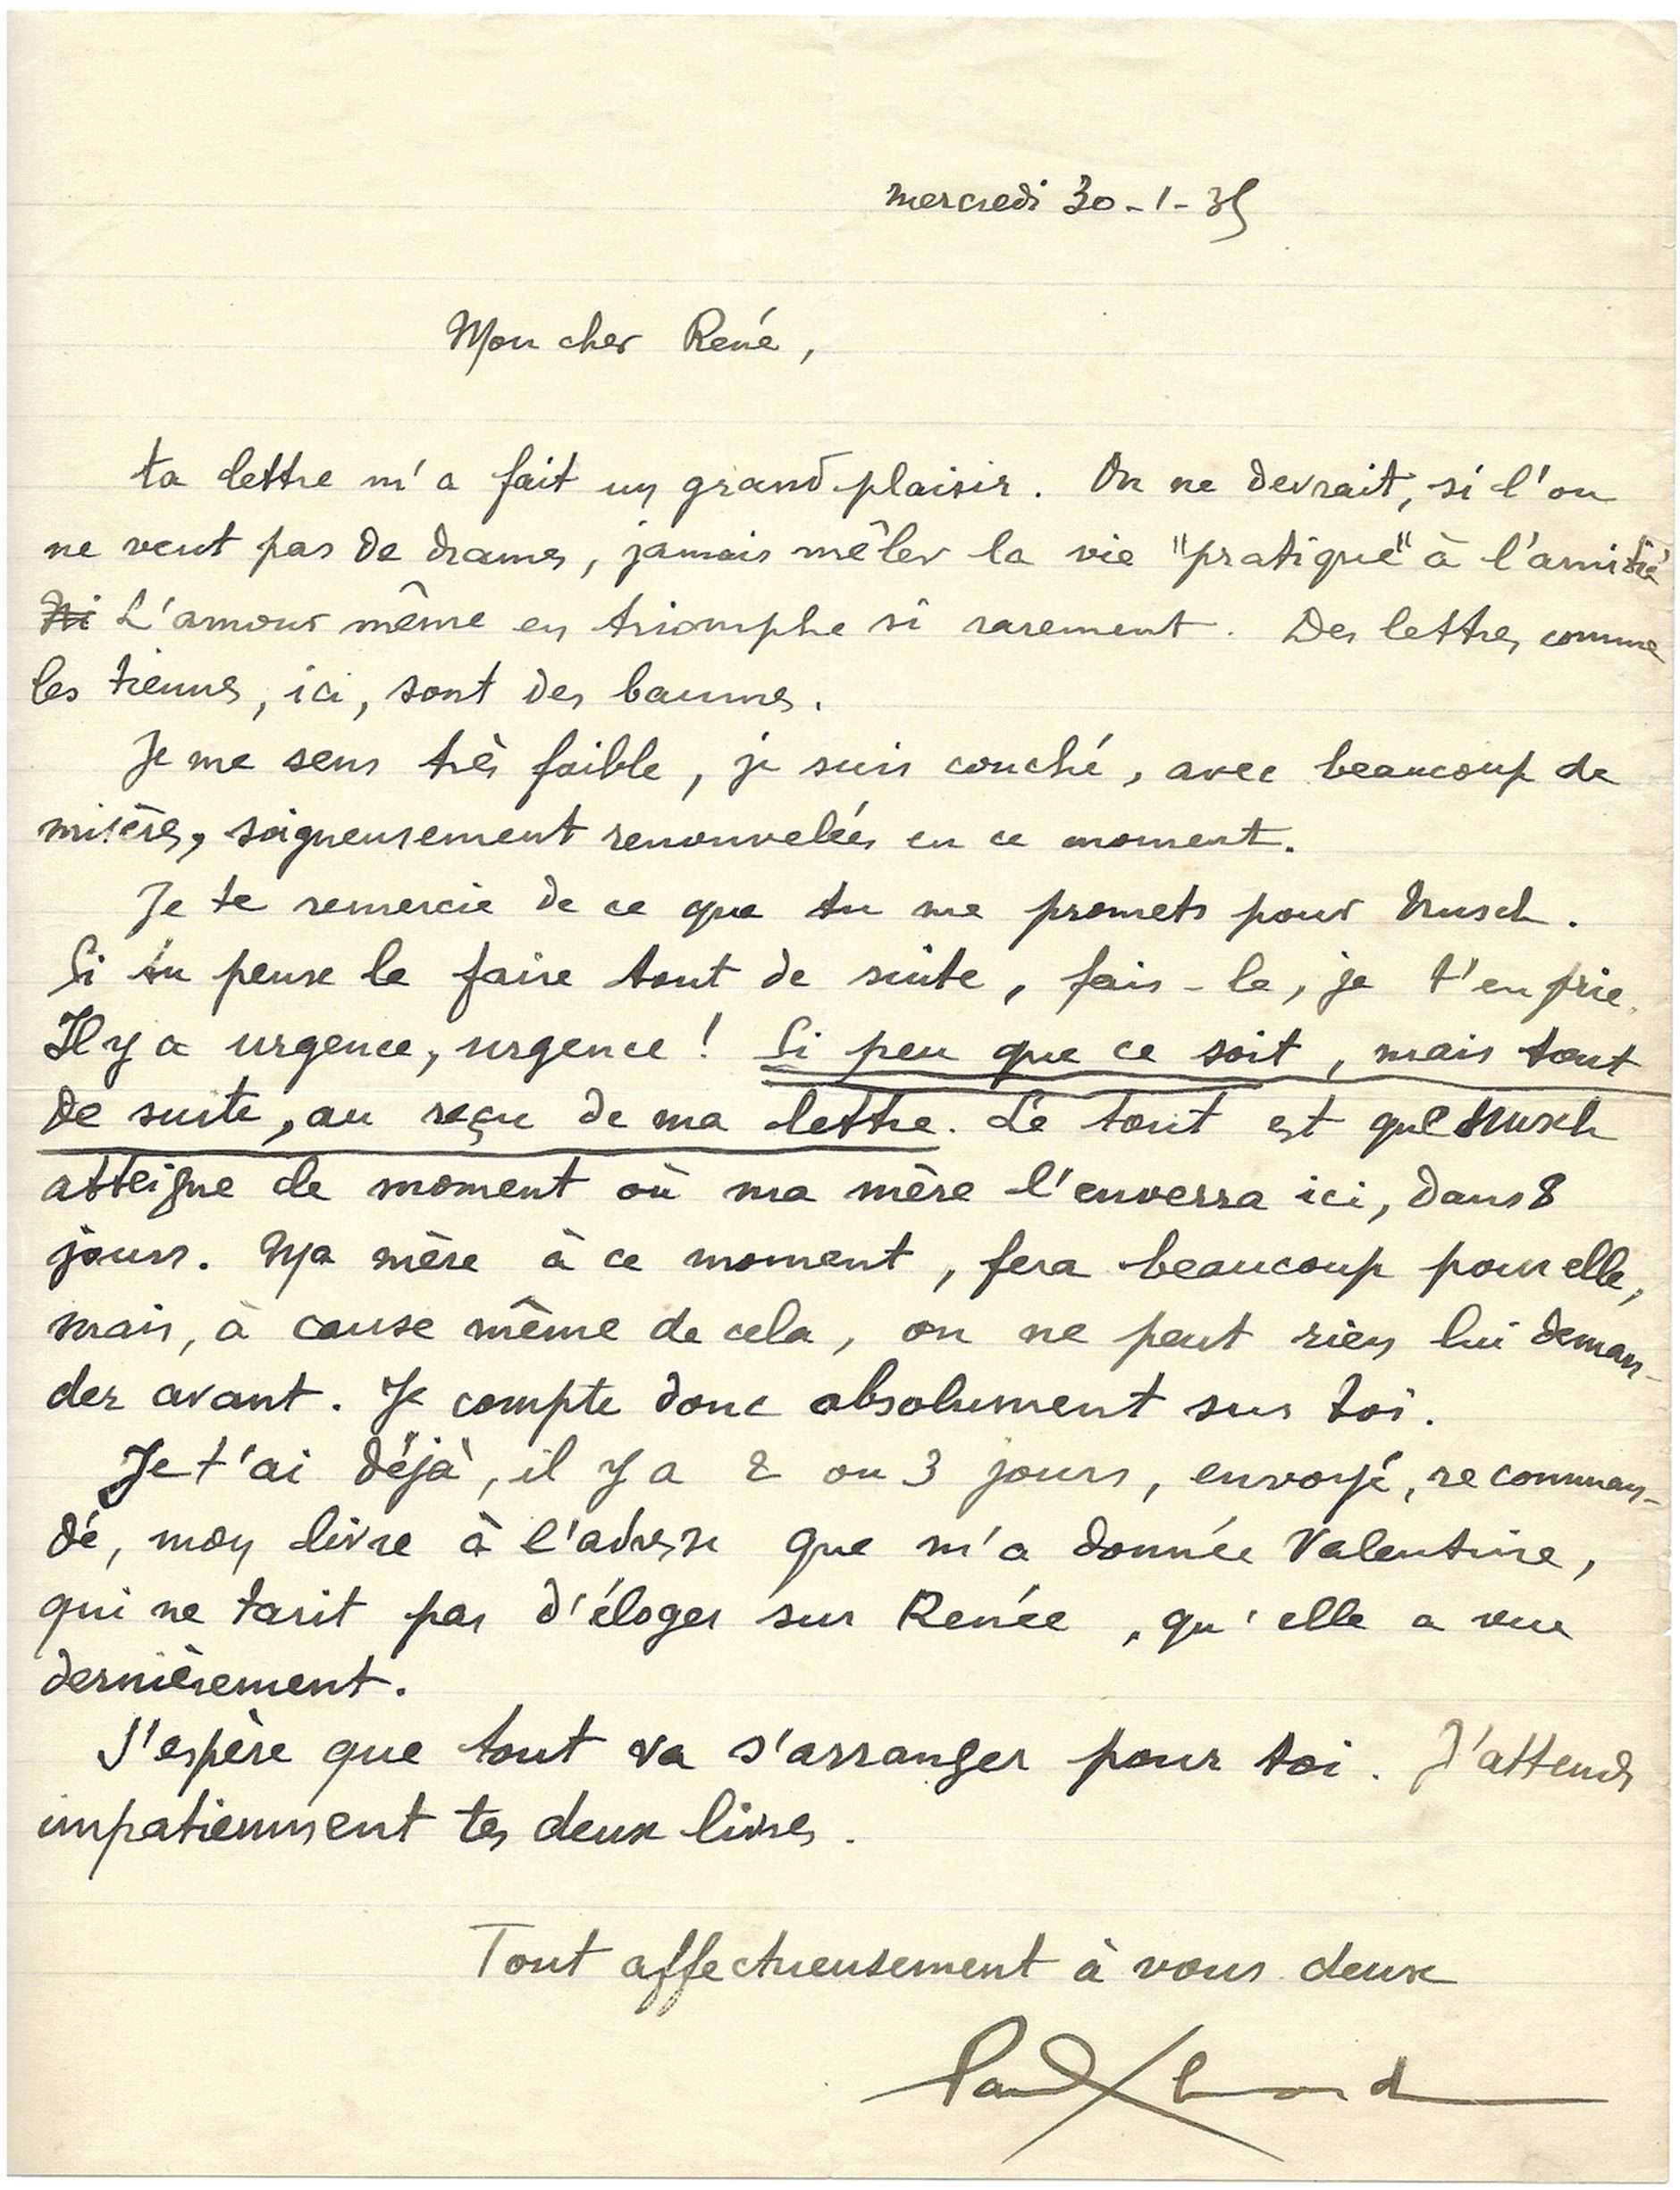 mercredi 30-1-35
Mon cher René,
ta lettre m'a fait un grand plaisir. On ne devrait, si l'on
ne veut pas de drames, jamais mêler la vie "pratique" à l'amitié
Ni L'amour même en triomphe si rarement. Des lettres comme
les tiennes, ici, sont des baumes.
Je me sens très faible, je suis couché, avec beaucoup de
misères, soigneusement renouvelées en ce moment.
Je te remercie de ce que tu me promets pour Nusch.
Si tu peux le faire tout de suite, fais-le, je t'en prie.
Il y a urgence, urgence ! Si peu que ce soit, mais tout
de suite, au reçu de ma lettre. Le tout est que Nusch
atteigne le moment où ma mère l'enverra ici, dans 8
jours. Ma mère à ce moment, fera beaucoup pour elle,
mais, à cause même de cela, on ne peut rien lui deman-
der avant. Je compte donc absolument sur toi.
Je t'ai déjà, il y a 2 ou 3 jours, envoyé, recomman-
dé, mon livre à l'adresse que m'a donnée Valentine,
qui ne tarit pas d'éloges sur Renée, qu'elle a vue
dernièrement.
J'espère que tout va s'arranger pour toi. J'attends
impatiemment tes deux livres.
Tout affectueusement à vous deux
Paul Eluard